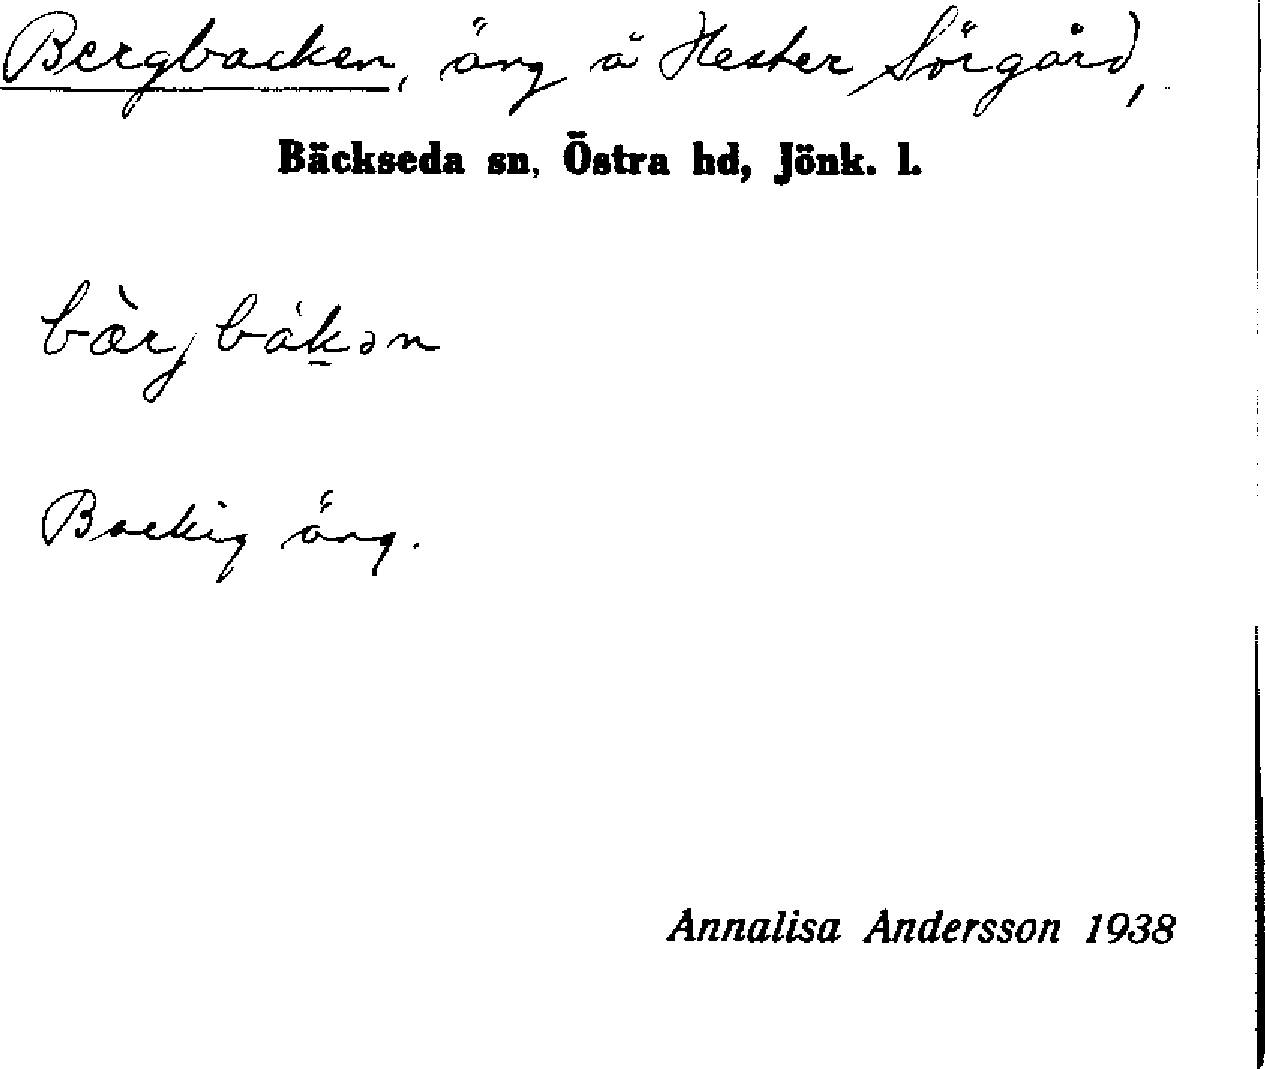 Bergbacken, äng å Hester Sörgård,
Bäckseda sn, Östra hd, Jönk. l.
bæ̀rjbákən
Backig äng.
Annalisa Andersson 1938